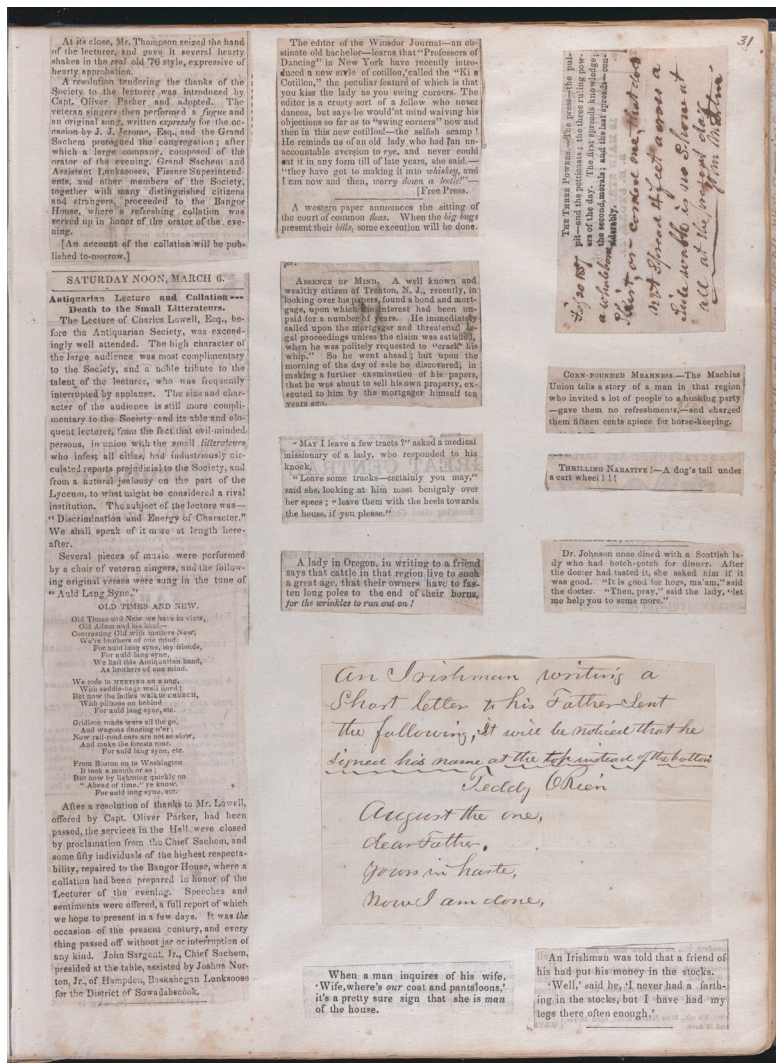 31
At its close, Mr. Thompson seized the hand
of the lecturer, and gave it several hearty
shakes in the real old '76 style, expressive of
hearty approbation.
A resolution tendering the thanks of the
Society to the lecturer was introduced by
Capt. Oliver Parker and adopted. The
veteran singers then performed a fugue and
an original song, written expressly for the oc-
casion by J. J. Jerome, Esq., and the Grand
Sachem prorogued the congregation; after
which a large company, composed of the
orator of the evening, Grand Sachem and
Assistant Lunksooses, Fissure Superintend-
ents, and other members of the Society,
together with many distinguished citizens
and strangers, proceeded to the Bangor
House, where a refreshing collation was
served up in honor of the orator of the eve-
ning.
[An account of the collation will be pub-
lished to-morrow.]
SATURDAY NOON, MARCH 6.
Antiquarian Lecture and Collation---
Death to the Small Litterateurs.
The Lecture of Charles Lowell, Esq., be-
fore the Antiquarian Society, was exceed-
ingly well attended. The high character of
the large audience was most complimentary
to the Society, and a noble tribute to the
talent of the lecturer, who was frequently
interrupted by applause. The size and char-
acter of the audience is still more compli-
mentary to the Society and its able and elo-
quent lecturer, from the fact that evil-minded
persons, in union with the small litterateurs
who infest all cities, had industriously cir-
culated reports prejudicial to the Society, and
from a natural jealousy on the part of the
Lyceum, to what might be considered a rival
institution. The subject of the lecture was—
"Discrimination and Energy of Character."
We shall speak of it more at length here-
after.
Several pieces of music were performed
by a choir of veteran singers, and the follow-
ing original verses were sung in the tune of
"Auld Lang Syne."
OLD TIMES AND NEW.
Old Times and New we have in view,
Old Adam and his kind—
Contrasting Old with matters New,
We're brothers of one mind.
For auld lang syne, my friends,
For auld lang syne,
We Hail this Antiquarian band,
As brothers of one mind.
We rode to MEETING on a nag,
With saddle-bags well lined;
But now the ladies walk to CHURCH,
With pillions on behind
For auld lang syne, etc.
Gridiron roads were all the go,
And wagons dancing o'er;
Now rail-road cars are not so slow,
And make the forests roar.
For auld lang syne, etc.
From Boston on to Washington
It took a month or so;
But now by lightning quickly on
"Ahead of time." ye know.
For auld lang syne, etc.
After a resolution of thanks to Mr. Lowell,
offered by Capt. Oliver Parker, had been
passed, the services in the Hall were closed
by proclamation from the Chief Sachem, and
some fifty individuals of the highest respecta-
bility, repaired to the Bangor House, where a
collation had been prepared in honor of the
Lecturer of the evening. Speeches and
sentiments were offered, a full report of which
we hope to present in a few days. It was the
occasion of the present century, and every
thing passed off without jar or interruption of
any kind. John Sargent, Jr., Chief Sachem,
presided at the table, assisted by Joshua Nor-
ton, Jr., of Hampden, Baskahegan Lunksoose
for the District of Sowadabscook.
The editor of the Winsdor Journal—an ob-
stinate old bachelor—learns that "Professors of
Dancing" in New York have recently intro-
duced a new style of cotillon, called the "Kiss
Cotillon," the peculiar feature of which is that
you kiss the lady as you swing corners. The
editor is a crusty sort of a fellow who never
dances, but says he would'nt mind waiving his
objections so far as to "swing corners" now and
then in this new cotillon!—the selfish scamp!
He reminds us of an old lady who had an un-
accountable aversion to rye, and never could
eat it in any form till of late years, she said.—
"they have got to making it into whiskey, and
I can now and then, worry down a leetle!"—
[Free Press.
A western paper announces the sitting of
the court of common fleas. When the big bugs
present their bills, some execution will be done.
ABSENCE OF MIND. A well known and
wealthy citizen of Trenton, N. J., recently, in
looking over his papers, found a bond and mort-
gage, upon which the interest had been un-
paid for a number of years. He immediately
called upon the mortgager and threatened le-
gal proceedings unless the claim was satisfied,
when he was politely requested to "crack his
whip." So he went ahead; but upon the
morning of the day of sale he discovered, in
making a further examination of his papers,
that he was about to sell his own property, ex-
ecuted to him by the mortgager himself ten
years ago.
"MAY I leave a few tracts?" asked a medical
missionary of a lady, who responded to his
knock,
"Leave some tracks—certainly you may,"
said she, looking at him most benignly over
her specs; "leave them with the heels towards
the house, if you please."
A lady in Oregon, in writing to a friend
says that cattle in that region live to such
a great age, that their owners have to fas-
ten long poles to the end of their horns,
for the wrinkles to run out on!
THE THREE POWERS.—The press—the pul-
pit—and the petticoats; the three ruling pow-
ers of the day. The first spreads knowledge;
the second, morals; and the last spreads—con-
siderably.
not Spread 4 feet across a
all at the present day
CORN-FOUNDED MEANNESS.—The Machias
Union tells a story of a man in that region
who invited a lot of people to a husking party
—gave them no refreshments,—and charged
them fifteen cents apiece for horse-keeping.
THRILLING NARATIVE!—A dog's tail under
a cart wheel!!!
Dr. Johnson once dined with a Scottish la-
dy who had hotch-potch for dinner. After
the doctor had tasted it, she asked him if it
was good. "It is good for hogs, ma'am," said
the doctor. "Then, pray," said the lady, "let
me help you to some more."
An Irishman writing a
Short letter to his Father Sent
the following, It will be noticed that he
signed his name at the top instead of the bottom
Teddy ORien
August the one,
dear Father,
yours in haste,
Now I am done,
When a man inquires of his wife,
'Wife, where's our coat and pantaloons,'
it's a pretty sure sign that she is man
of the house.
An Irishman was told that a friend of
his had put his money in the stocks.
'Well,' said he, 'I never had a farth-
ing in the stocks, but I have had my
legs there often enough.'